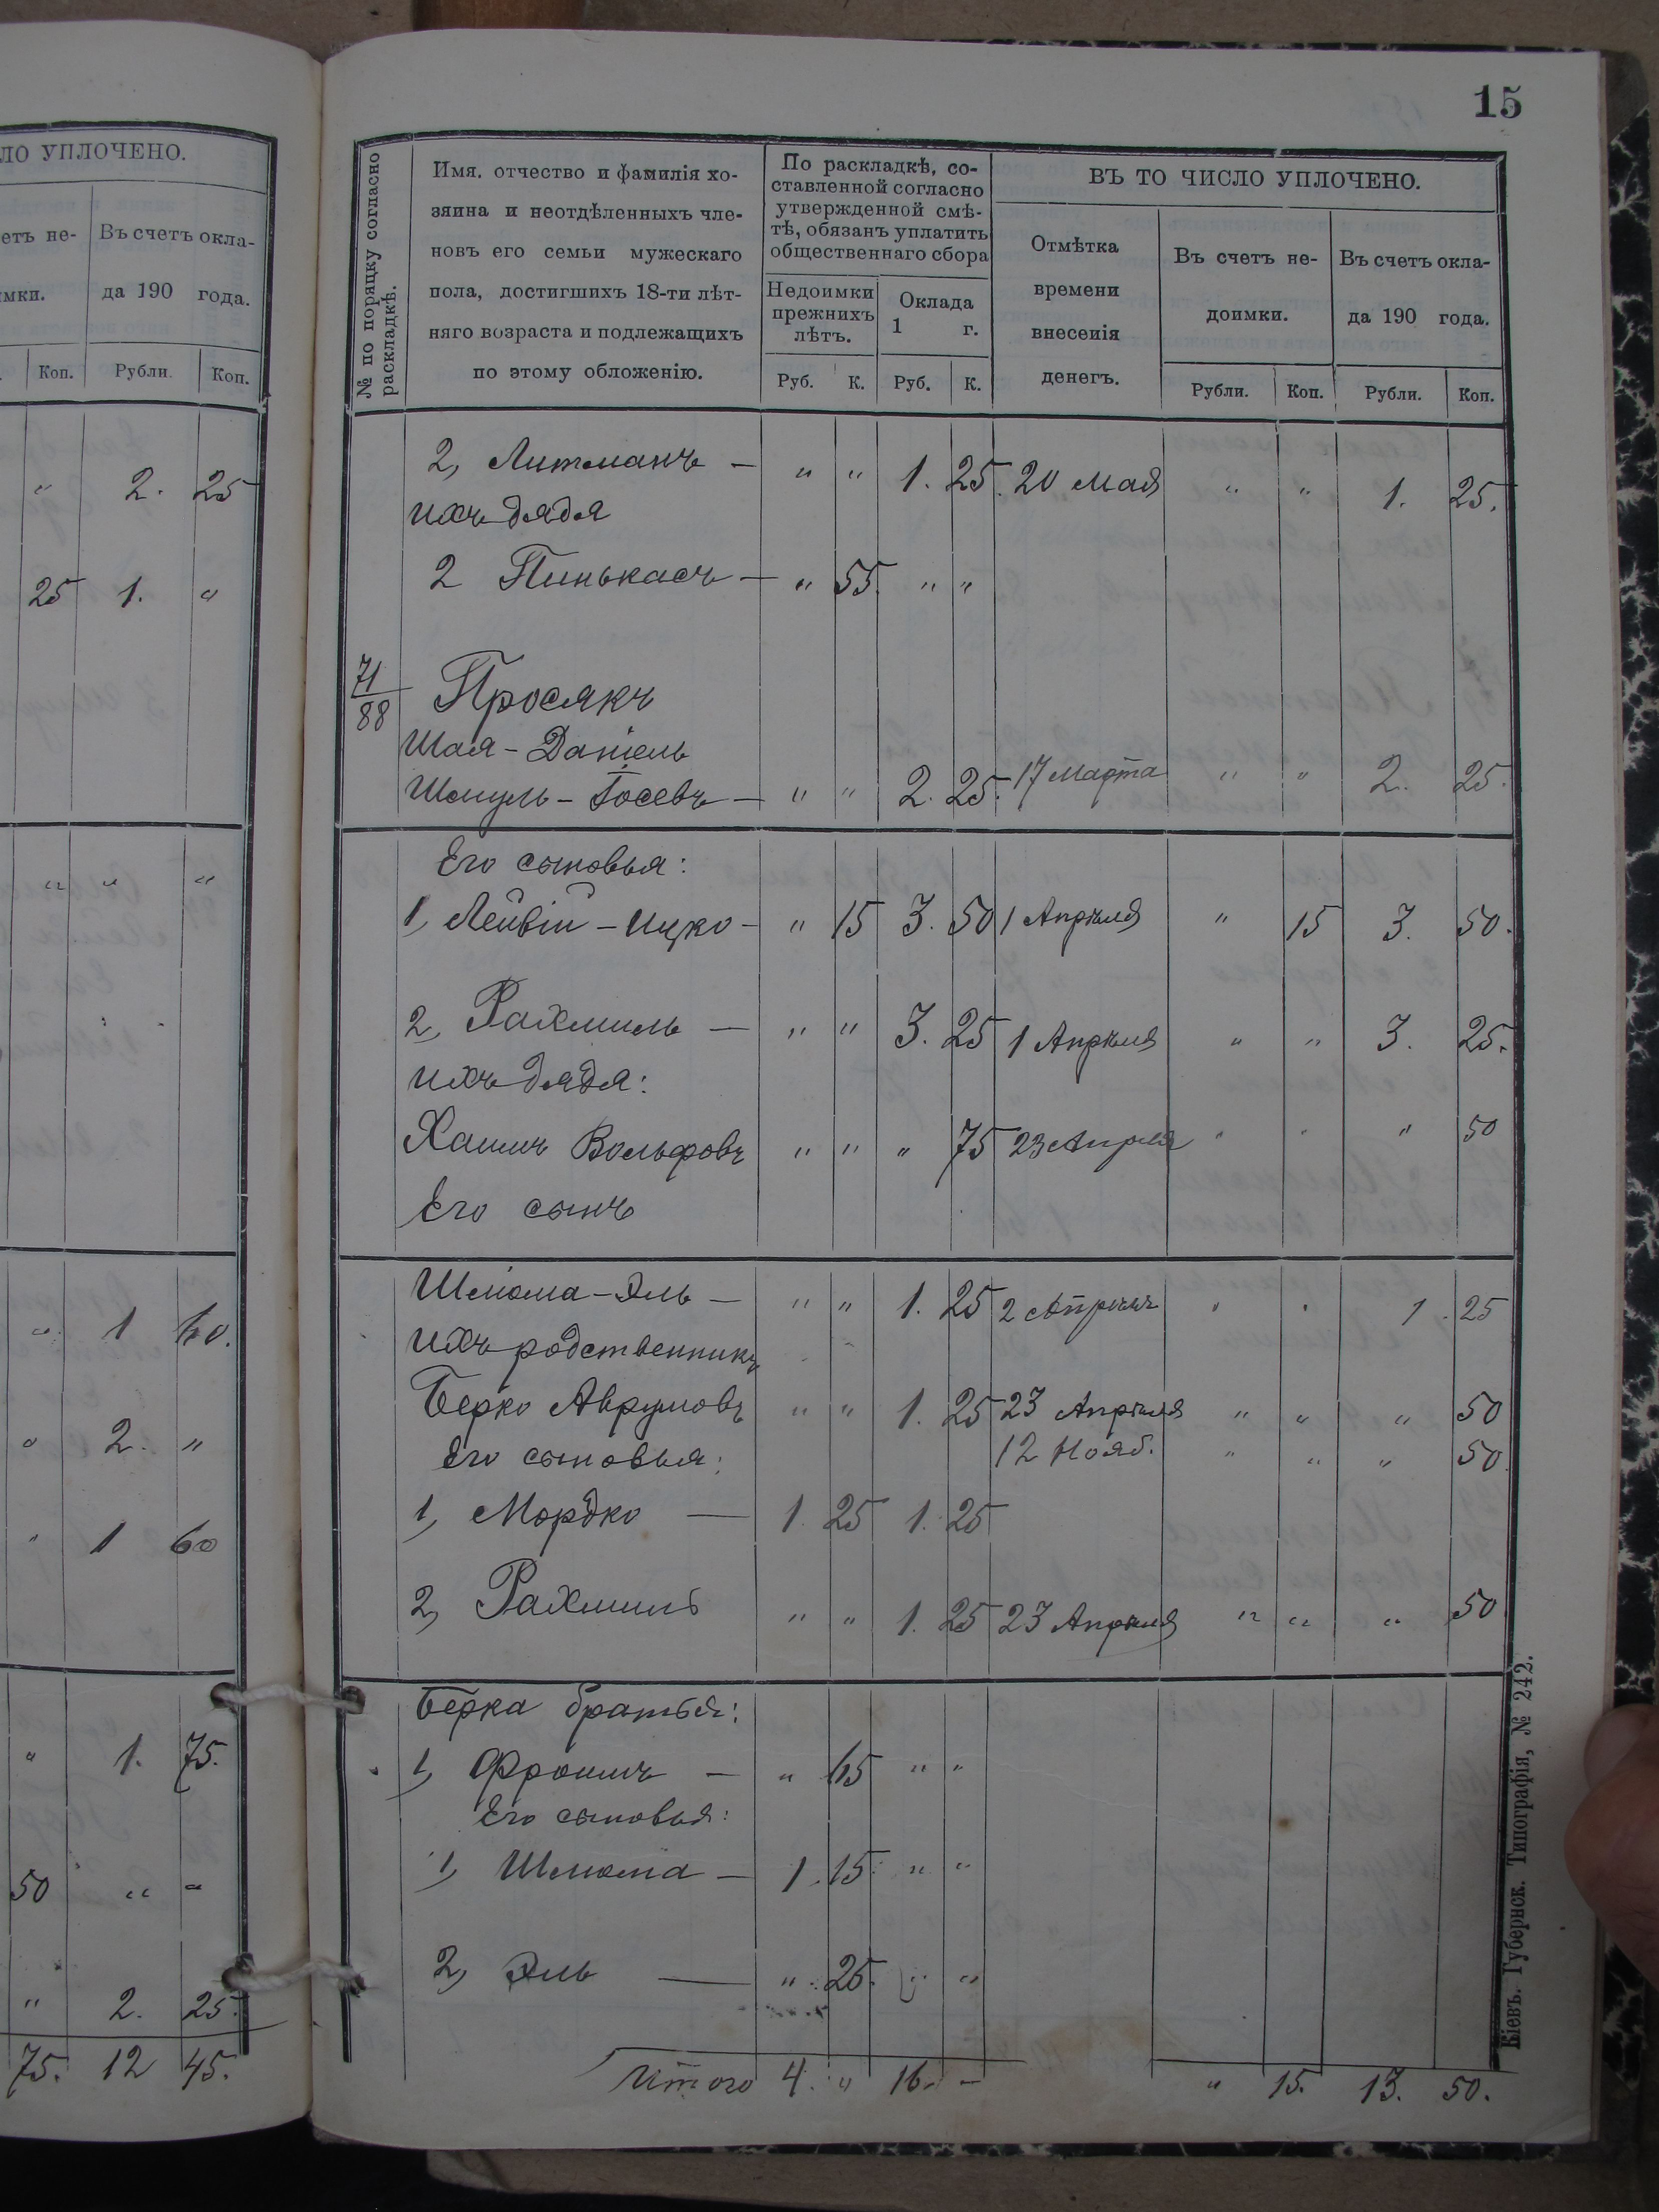 ЛО УПЛОЧЕНО.
етъ не-
имки.
Въ счетъ окла-
да 190 года.
Коп. Рубли. Коп.
" 2. 25
25 1. "
" " "
" 1 60.
" 2. "
" 1 60
" 1. 75.
50 " "
" 2. 25.
75. 12 45.
15
№ по поряцку согласно
раскладкѣ.
Имя. отчество и фамилія хо-
зяина и неотдѣленныхъ чле-
новъ его семьи мужескаго
пола, достигшихъ 18-ти лѣт-
няго возраста и подлежащихъ
по этому обложенію.
По раскладкѣ, со-
ставленной согласно
утвержденной смѣ-
тѣ, обязанъ уплатить
общественнаго сбора
Недоимки
прежнихъ
лѣтъ.
Оклада
1 г.
Руб. К. Руб. К.
ВЪ ТО ЧИСЛО УПЛОЧЕНО.
Отмѣтка
времени
внесенія
денегъ.
Въ счетъ не-
доимки.
Въ счетъ окла-
да 190 года.
Рубли. Коп. Рубли. Коп.
2, Литманъ — " " 1. 25. 20 Мая " " 1. 25.
ихъ дядя
2 Пинькасъ — " 55. " "
71
88
Просякъ
Шая - Даніель
Шмуль - Іосевъ — " " 2. 25. 17 Марта " " 2. 25.
Его сыновья:
1, Лейвій - Ицко - " 15 3. 50 1 Апрѣля " 15 3. 50.
2, Рахмиль — " " 3. 25 1 Апрѣля " " 3. 25.
ихъ дядя:
Хаимъ Вольфовъ " " " 75 23 Апрѣля " " " 50
Его сынъ
Шліома - Эль — " " 1. 25 2 Апрѣля " " 1. 25
ихъ родственникъ
Берко Аврумовъ " " 1. 25 23 Апрѣля " " " 50
Его сыновья: 12 Нояб. " " " 50
1, Мордко — 1. 25 1. 25
2, Рахмиль " " 1. 25 23 Апрѣля " " " 50
Берка братья:
1, Фроимъ — " 65 " "
Его сыновья:
1, Шліома — 1. 15 " "
2, Эль — " 25. " "
Итого 4. " 16. - " 15. 13. 50.
Кіевъ. Губернск. Типографія, № 242.